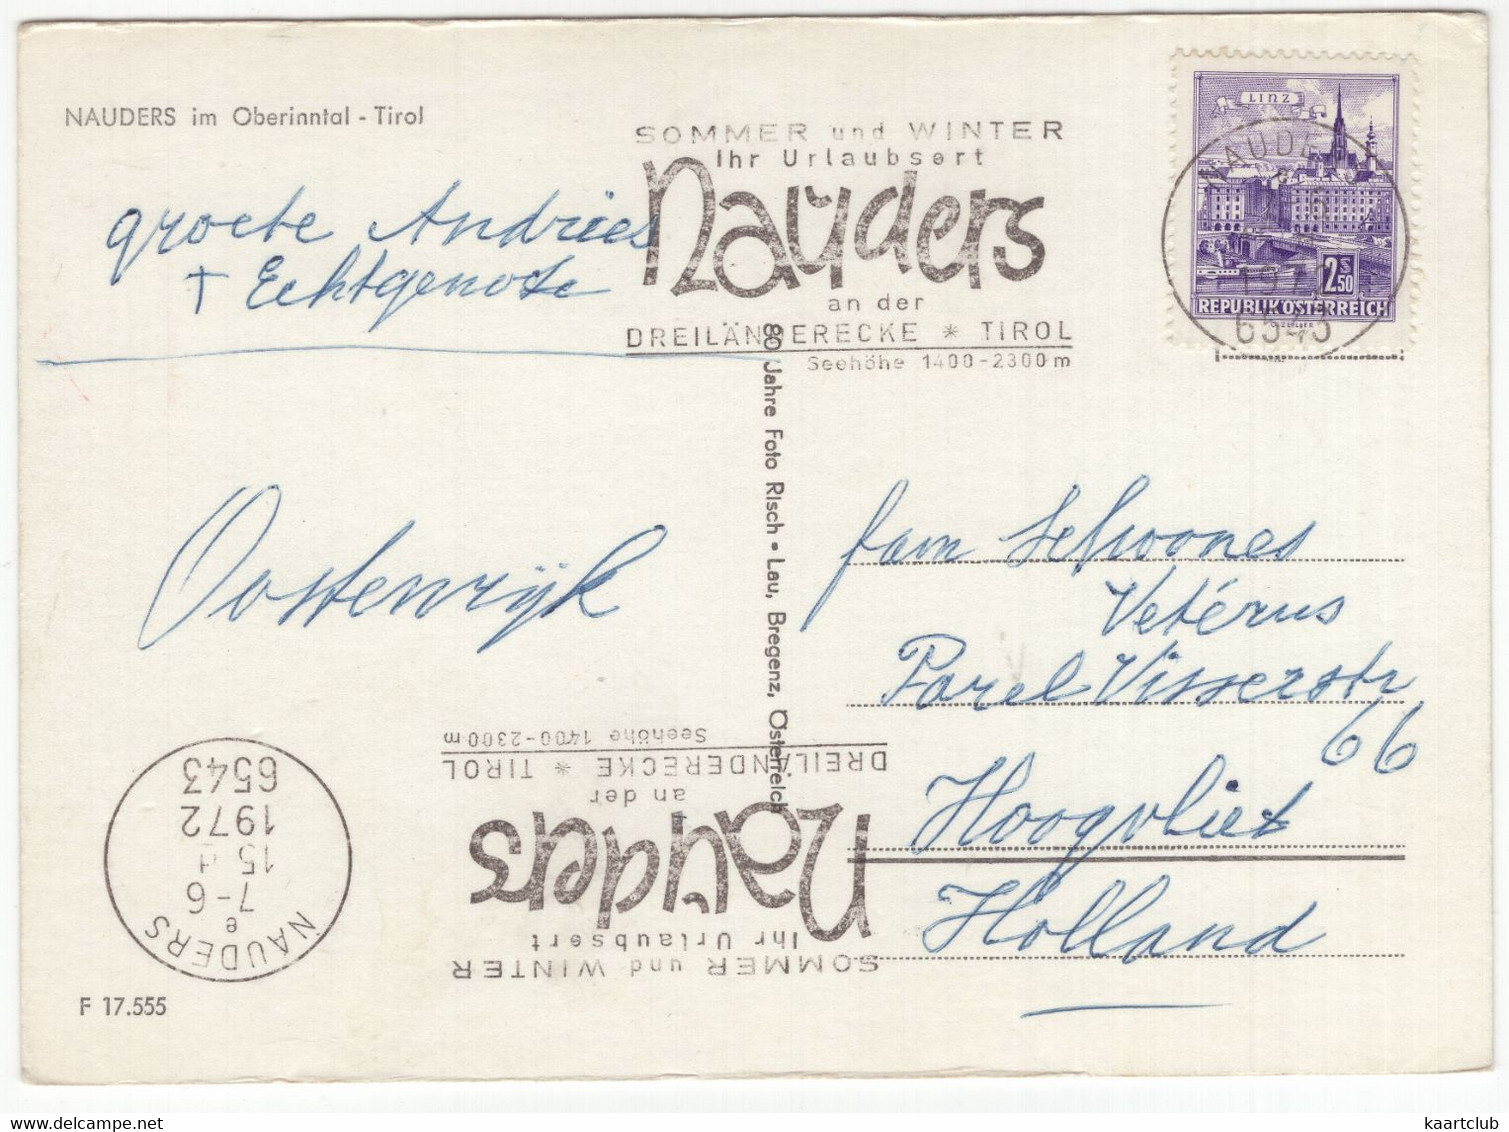 NAUDERS im Oberinntal - Tirol
groete Andries
+ Echtgenote
Oostenrijk
SOMMER und WINTER
Ihr Urlaubsort
Nauders
an der
DREILÄNDERECKE * TIROL
Seehöhe 1400-2300 m
LINZ
2.50
REPUBLIK ÖSTERREICH
NAUDERS
6543
80 Jahre Foto Risch • Lau, Bregenz, Österreich
fam Schoones
Vetérus
Parel Visserstr
66
Hoogvliet
Holland
SOMMER und WINTER
Ihr Urlaubsort
Nauders
an der
DREILÄNDERECKE * TIROL
Seehöhe 1400-2300 m
NAUDERS
e
7-6
15
1972
6543
F 17.555
kaartclub